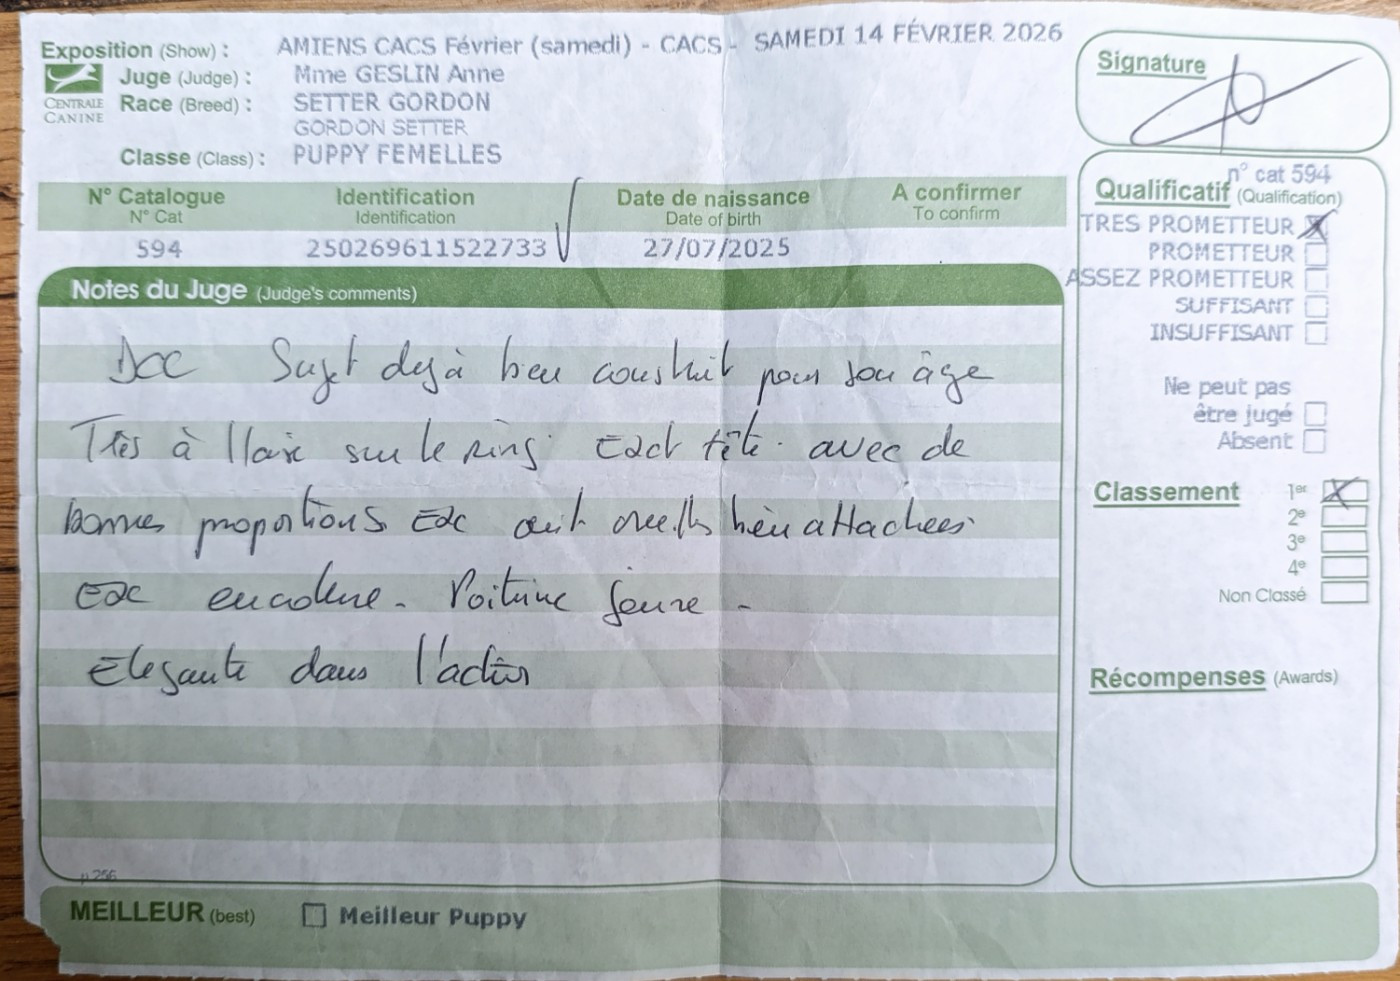 Exposition (Show) : AMIENS CACS Février (samedi) - CACS - SAMEDI 14 FÉVRIER 2026
CENTRALE CANINE
Juge (Judge) : Mme GESLIN Anne
Race (Breed) : SETTER GORDON
GORDON SETTER
Classe (Class) : PUPPY FEMELLES
N° Catalogue Identification Date de naissance A confirmer
N° Cat Identification Date of birth To confirm
594 250269611522733 27/07/2025
Notes du Juge (Judge's comments)
Sujet dejà bien construit pour son âge
Très à l'aise sur le ring. tête avec de
bonnes proportions Exc oreilles bien attachées
Exc encolure - Poitrine
Elegante dans l'action
p.256
MEILLEUR (best) Meilleur Puppy
Signature
n° cat 594
Qualificatif (Qualification)
TRES PROMETTEUR
PROMETTEUR
ASSEZ PROMETTEUR
SUFFISANT
INSUFFISANT
Ne peut pas
être jugé
Absent
Classement 1er
2e
3e
4e
Non Classé
Récompenses (Awards)